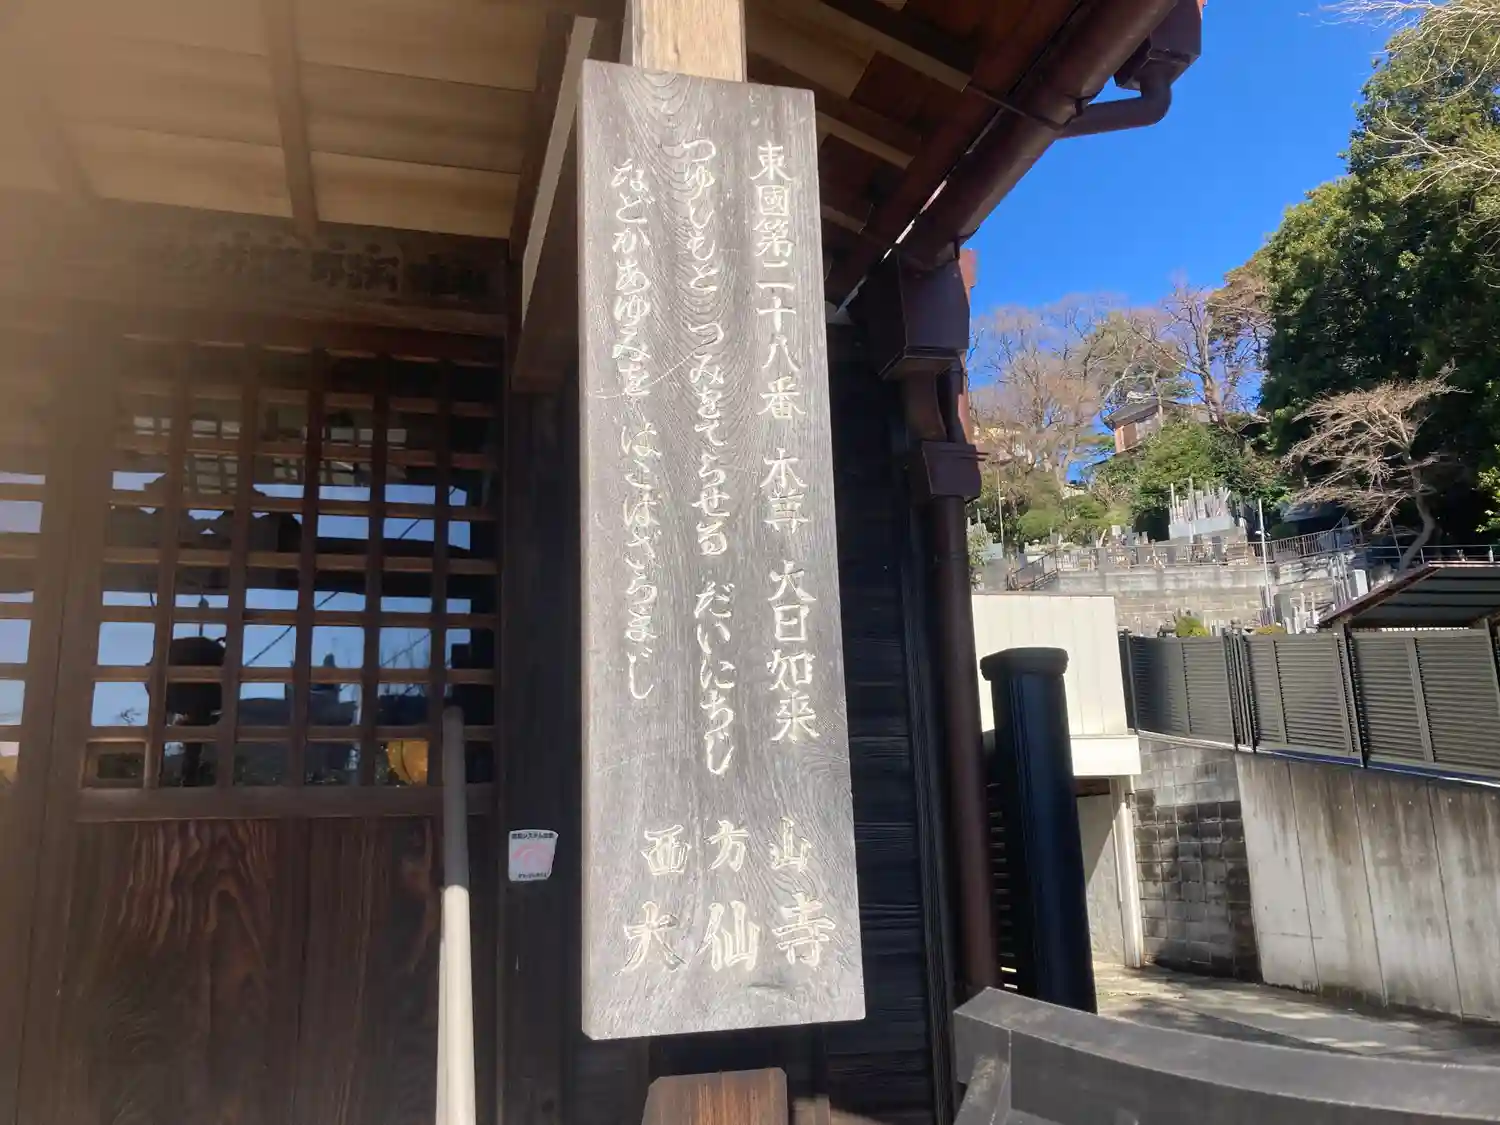 東國第二十八番 本尊 大日如来
つゆしもと つみをてらせる だいにちじ
などかあゆみを はこばざらまじ
西方山
大仙寺